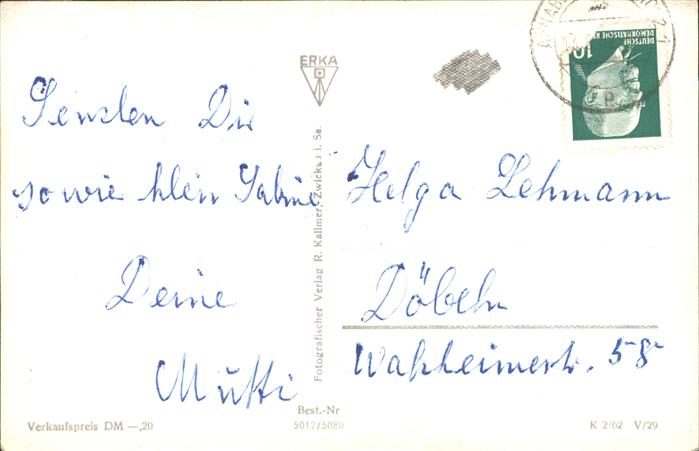 Senden Dir
sowie klein Sabine
Deine
Mutti
ERKA
Fotografischer Verlag R. Kallmer, Zwickau i. Sa.
DEUTSCHE
DEMOKRATISCHE RE
10
Helga Lehmann
Döbeln
58
Verkaufspreis DM —,20
Best.-Nr
5012/5080
K 2/62 V/29